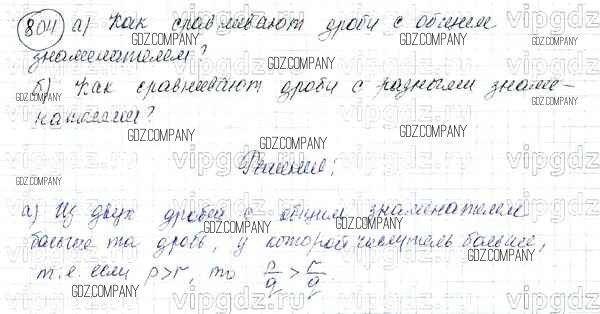 804) а) Как сравнивают дроби с общим
знаменателем?
б) Как сравнивают дроби с разными знаме-
нателями?
Решение:
а) Из двух дробей с общим знаменателем
больше та дробь, у которой числитель больше,
т.е. если p>r, то p/q > r/q.
vipgdz
GDZ.COMPANY